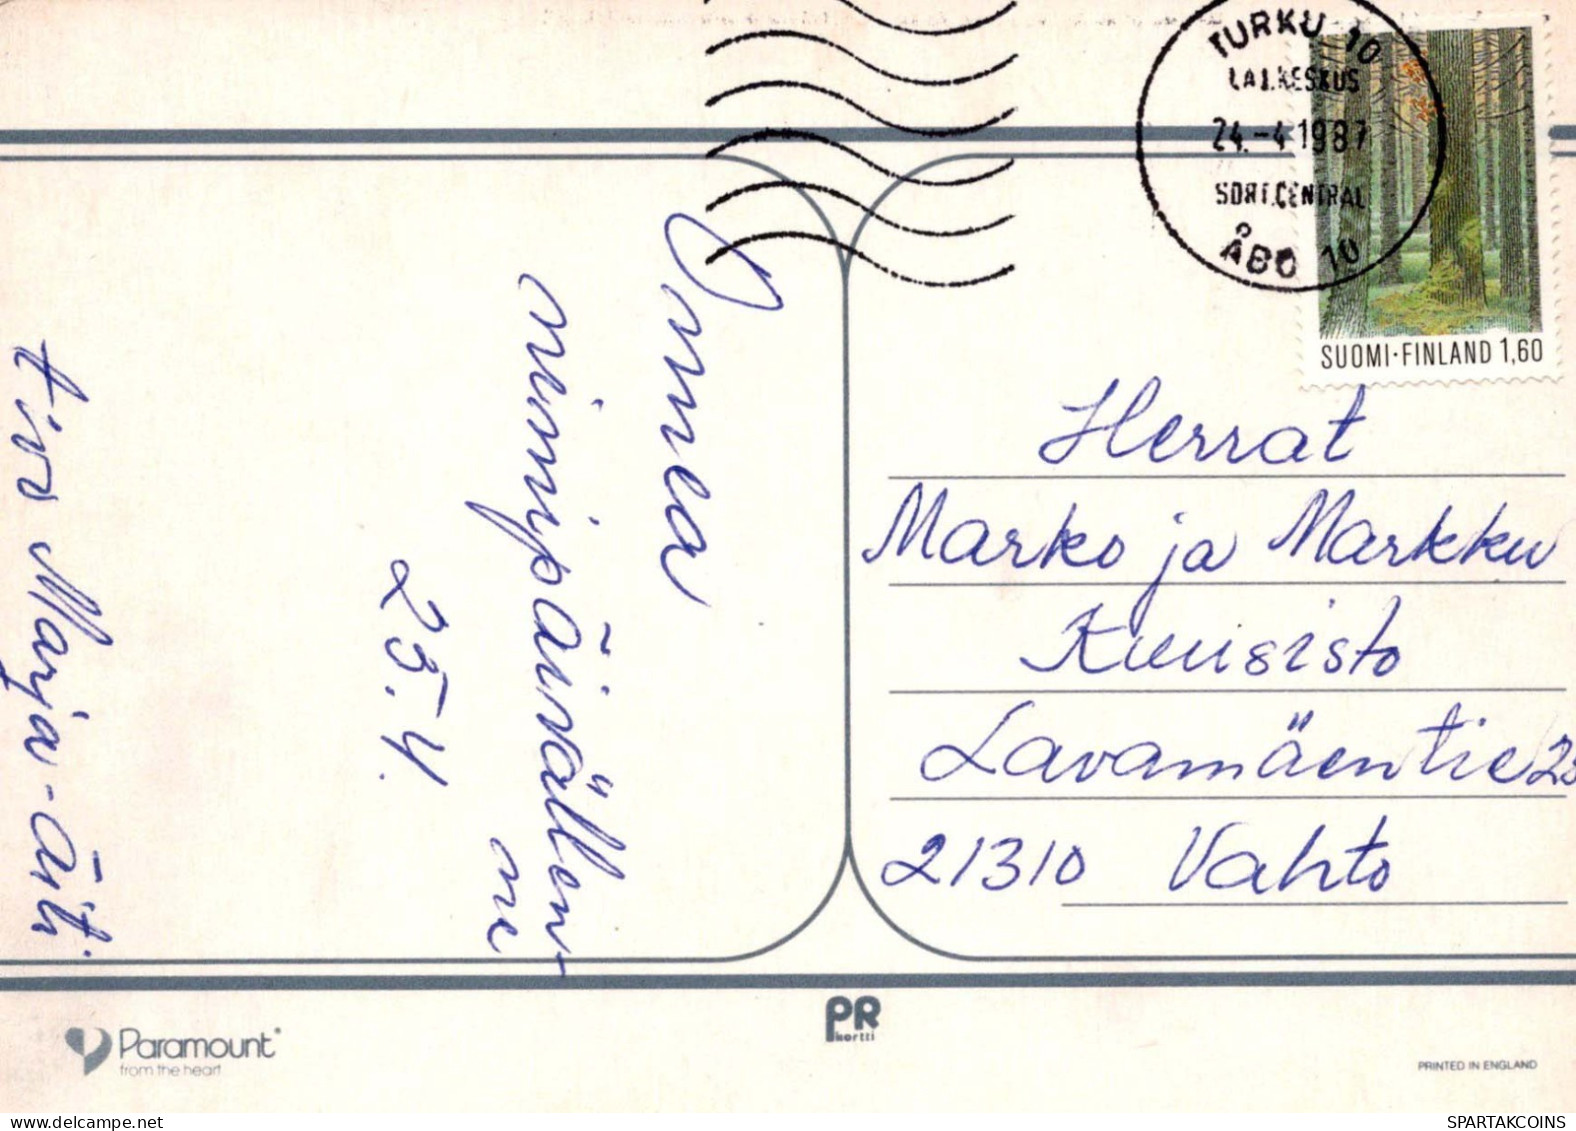 TURKU 10
LAJ.KESKUS
24.-4.1987
SORT.CENTRAL
ÅBO 10
SUOMI·FINLAND 1,60
Onnea
nimipäivällen-
ne
25.4.
Marja-äiti
Herrat
Marko ja Markku
Kuusisto
Lavamäentie 28
21310 Vahto
Paramount
from the heart
PR
kortti
PRINTED IN ENGLAND
SPARTAKCOINS